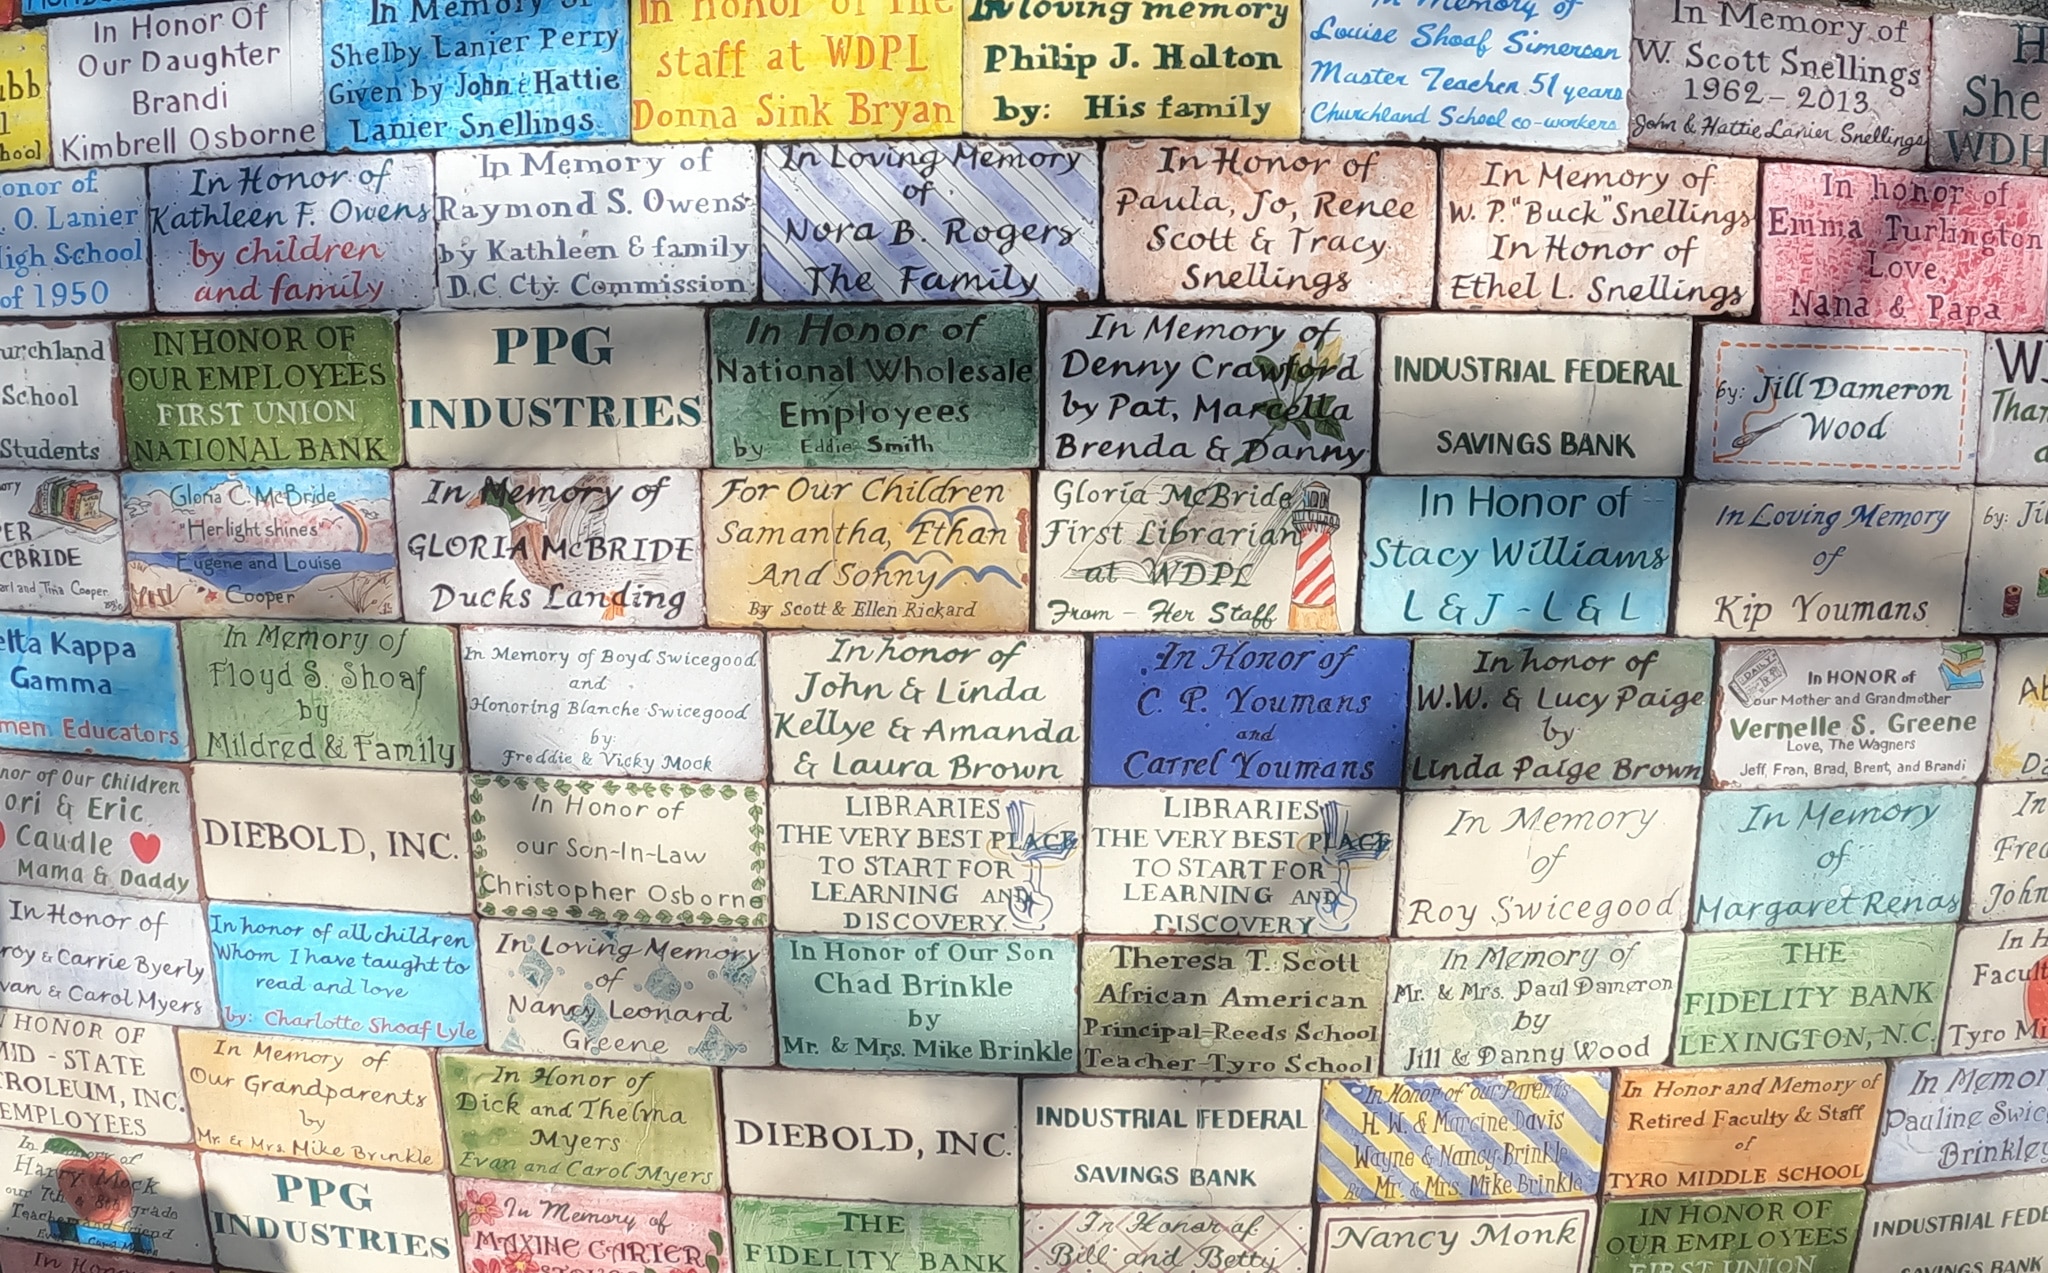 In Honor Of
Our Daughter
Brandi
Kimbrell Osborne
In Memory of
Shelby Lanier Perry
Given by John & Hattie
Lanier Snellings
In Honor of The
staff at WDPL
Donna Sink Bryan
In loving memory
Philip J. Holton
by: His family
In Memory of
Louise Shoaf Simerson
Master Teacher 51 years
Churchland School co-workers
In Memory of
W. Scott Snellings
1962 - 2013
John & Hattie Lanier Snellings
She
WDH
onor of
. O. Lanier
High School
of 1950
In Honor of
Kathleen F. Owens
by children
and family
In Memory of
Raymond S. Owens
by Kathleen & family
D.C. Cty. Commission
In Loving Memory
of
Nora B. Rogers
The Family
In Honor of
Paula, Jo, Renee
Scott & Tracy
Snellings
In Memory of
W. P. "Buck" Snellings
In Honor of
Ethel L. Snellings
In honor of
Emma Turlington
Love,
Nana & Papa
urchland
School
Students
IN HONOR OF
OUR EMPLOYEES
FIRST UNION
NATIONAL BANK
PPG
INDUSTRIES
In Honor of
National Wholesale
Employees
by Eddie Smith
In Memory of
Denny Crawford
by Pat, Marcella
Brenda & Danny
INDUSTRIAL FEDERAL
SAVINGS BANK
by: Jill Dameron
Wood
PER
CBRIDE
arl and Tina Cooper
Gloria C. McBride
"Her light shines"
Eugene and Louise
Cooper
In Memory of
GLORIA McBRIDE
Ducks Landing
For Our Children
Samantha, Ethan
And Sonny
By Scott & Ellen Rickard
Gloria McBride
First Librarian
at WDPL
From - Her Staff
In Honor of
Stacy Williams
L & J - L & L
In Loving Memory
of
Kip Youmans
by: Jil
elta Kappa
Gamma
men Educators
In Memory of
Floyd S. Shoaf
by
Mildred & Family
In Memory of Boyd Swicegood
and
Honoring Blanche Swicegood
by:
Freddie & Vicky Mock
In honor of
John & Linda
Kellye & Amanda
& Laura Brown
In Honor of
C. P. Youmans
and
Carrel Youmans
In honor of
W.W. & Lucy Paige
by
Linda Paige Brown
DAILY
In HONOR of
our Mother and Grandmother
Vernelle S. Greene
Love, The Wagners
Jeff, Fran, Brad, Brent, and Brandi
nor of Our Children
ori & Eric
Caudle
Mama & Daddy
DIEBOLD, INC.
In Honor of
our Son-In-Law
Christopher Osborne
LIBRARIES
THE VERY BEST PLACE
TO START FOR
LEARNING AND
DISCOVERY
LIBRARIES
THE VERY BEST PLACE
TO START FOR
LEARNING AND
DISCOVERY
In Memory
of
Roy Swicegood
In Memory
of
Margaret Renas
In
Fred
John
In Honor of
roy & Carrie Byerly
van & Carol Myers
In honor of all children
Whom I have taught to
read and love
by: Charlotte Shoaf Lyle
In Loving Memory
of
Nancy Leonard
Greene
In Honor of Our Son
Chad Brinkle
by
Mr. & Mrs. Mike Brinkle
Theresa T. Scott
African American
Principal-Reeds School
Teacher-Tyro School
In Memory of
Mr. & Mrs. Paul Dameron
by
Jill & Danny Wood
THE
FIDELITY BANK
LEXINGTON, N.C.
In H
Facult
Tyro Mi
HONOR OF
MID - STATE
TROLEUM, INC.
EMPLOYEES
In Memory of
Our Grandparents
by
Mr. & Mrs. Mike Brinkle
In Honor of
Dick and Thelma
Myers
Evan and Carol Myers
DIEBOLD, INC.
INDUSTRIAL FEDERAL
SAVINGS BANK
In Honor of our Parents
H. W. & Marcine Davis
Wayne & Nancy Brinkle
By Mr. & Mrs. Mike Brinkle
In Honor and Memory of
Retired Faculty & Staff
of
TYRO MIDDLE SCHOOL
In Memor
Pauline Swic
Brinkley
In Memory of
Harry Mock
our 7th & 8th grade
Teacher and friend
PPG
INDUSTRIES
In Memory of
MAXINE CARTER
THE
FIDELITY BANK
In Honor of
Bill and Betty
Nancy Monk
IN HONOR OF
OUR EMPLOYEES
FIRST UNION
INDUSTRIAL FEDE
SAVINGS BANK
In Honor